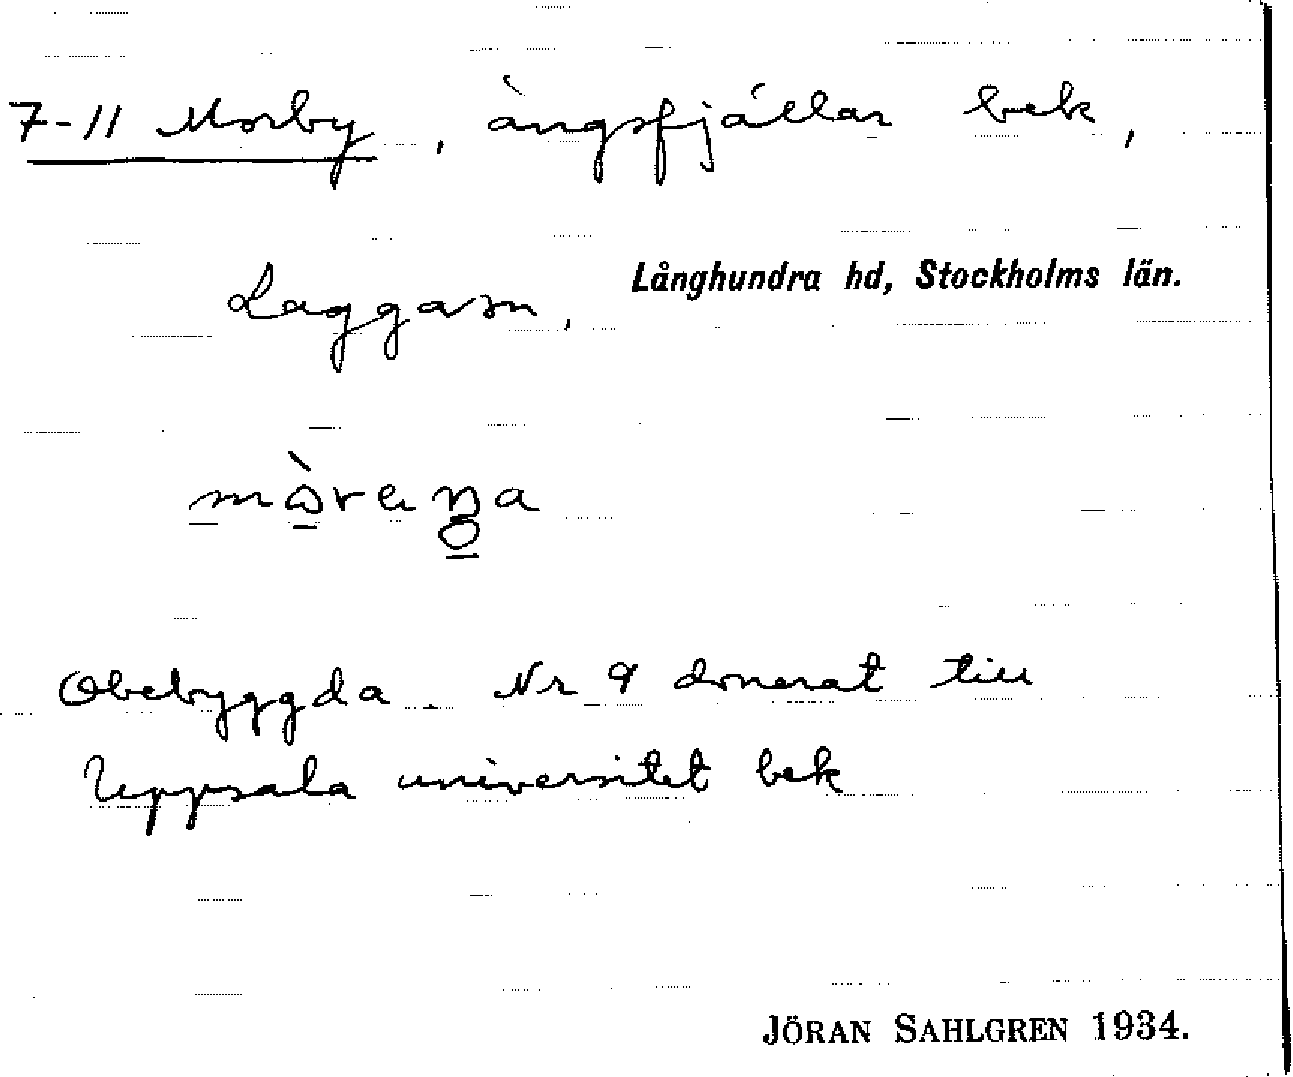 7-11 Morby, àngsfjállar bek,
Laggasn,
Långhundra hd, Stockholms län.
Obebyggda. Nr 9 donerat till
Uppsala universitet bek
JÖRAN SAHLGREN 1934.